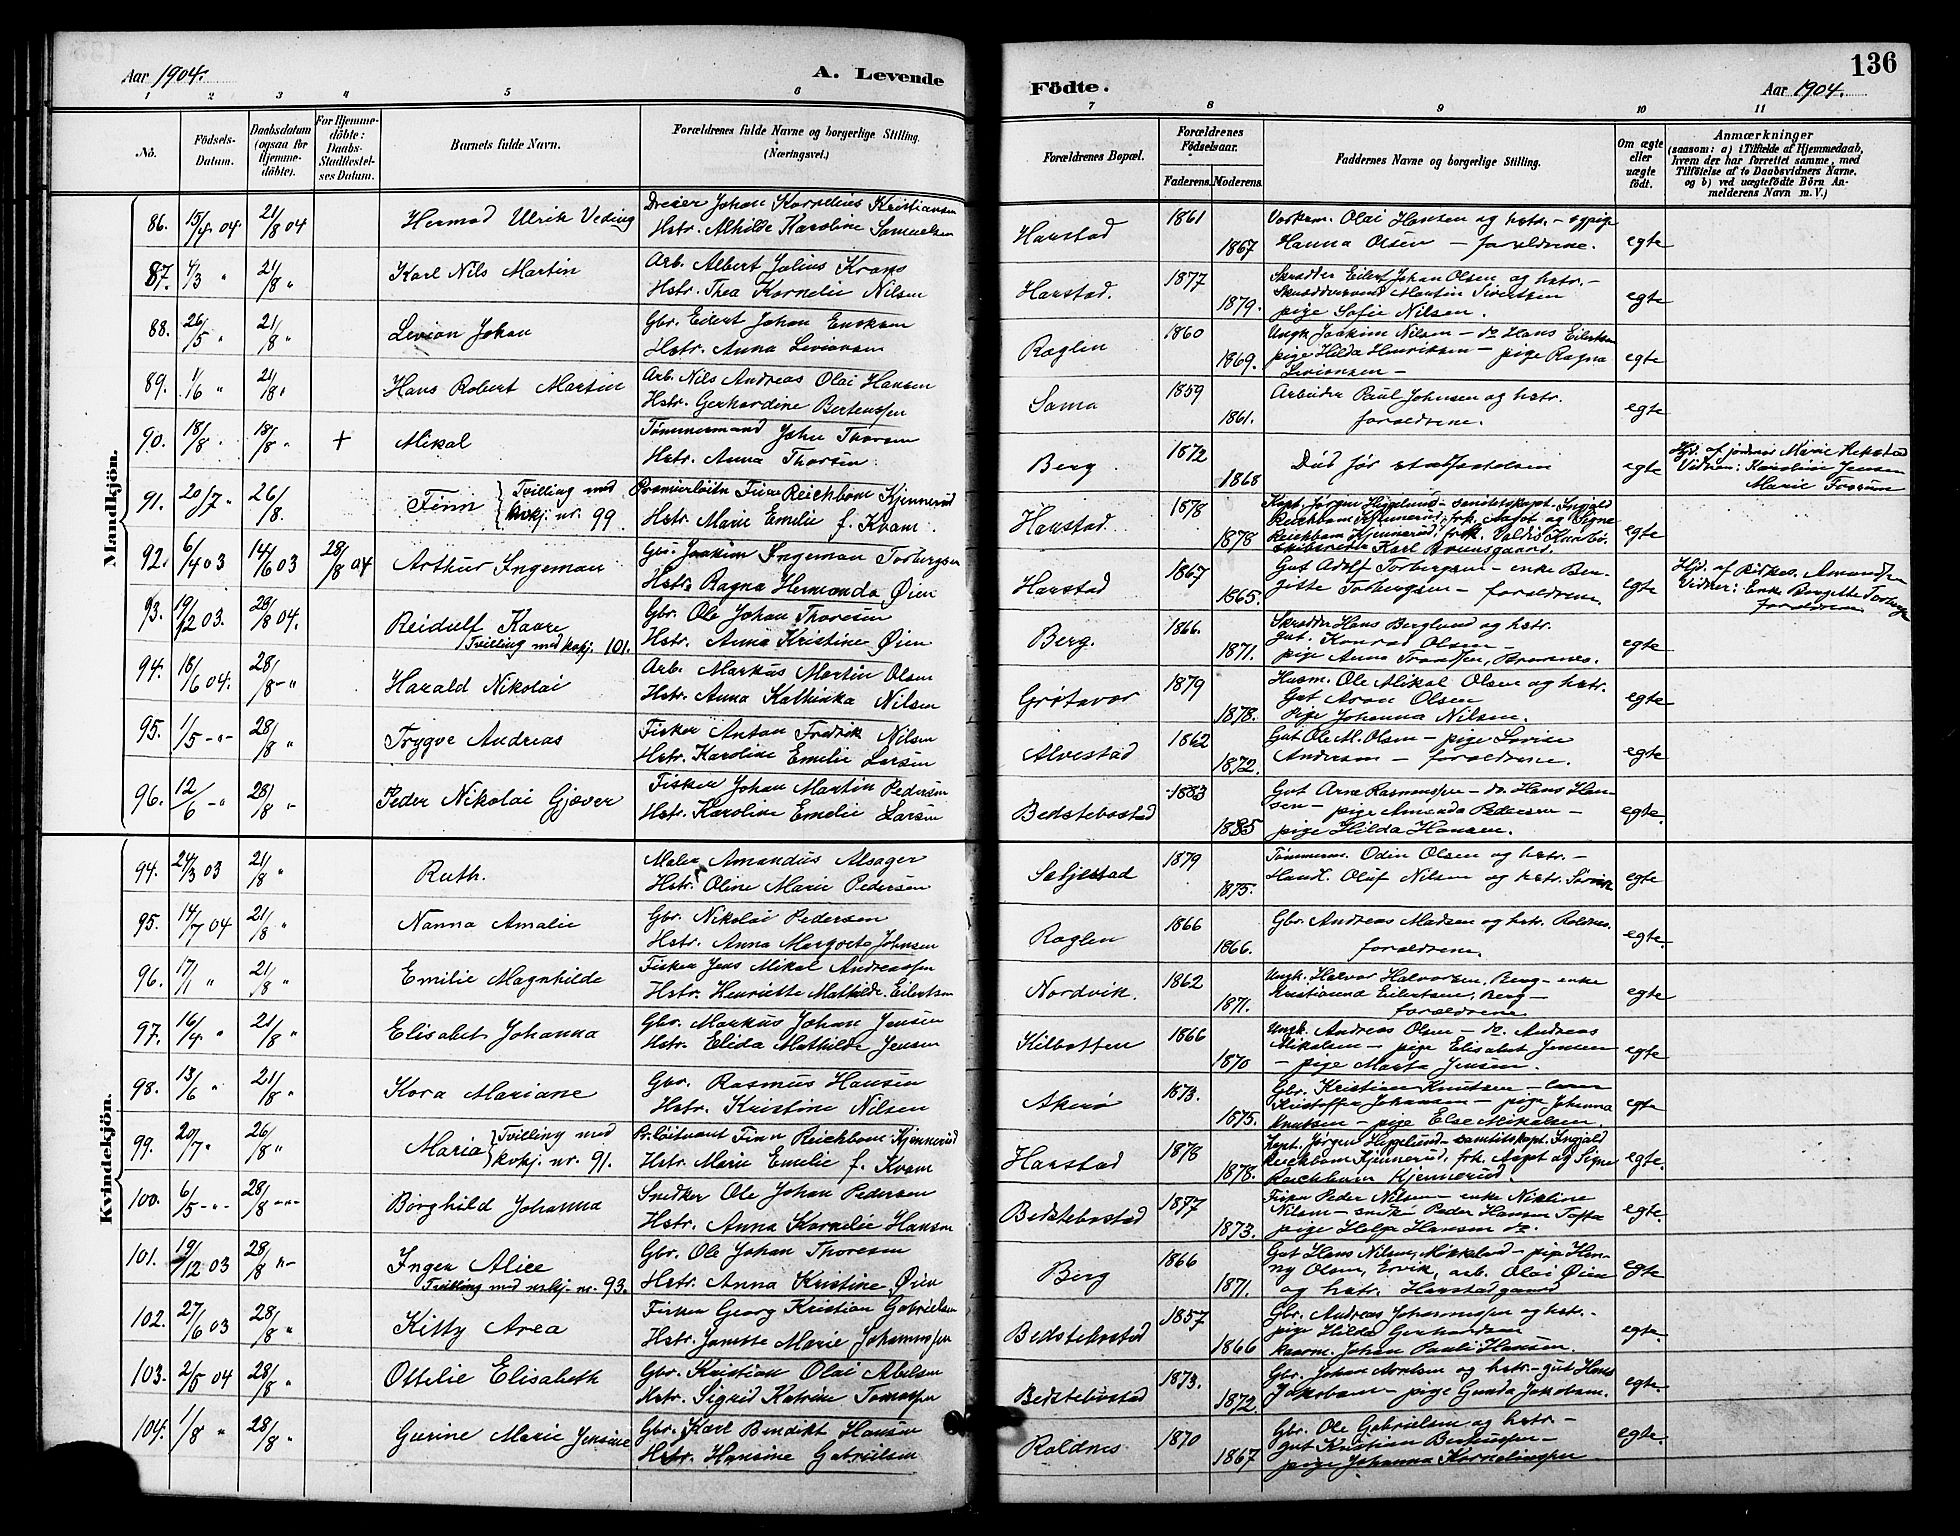 136
Aar 1904.
A. Levende
Födte.
Aar 1904.
1 2 3 4 5 6 7 8 9 10 11
No.
Födsels-
Datum.
Daabsdatum
(ogsaa for
Hjemme-
döbte).
For Hjemme-
döbte:
Daabs-
Stadfæstel-
ses Datum.
Barnets fulde Navn.
Forældrenes fulde Navne og borgerlige Stilling.
(Næringsvei.)
Forældrenes Bopæl.
Forældrenes
Födselsaar.
Faderens. Moderens.
Faddernes Navne og borgerlige Stilling.
Om ægte
eller
uægte
födt.
Anmærkninger
(saasom: a) i Tilfælde af Hjemmedaab,
hvem der har forrettet samme, med
Tilföielse af to Daabsvidners Navne,
og b) ved uægtefödte Börn An-
melderens Navn m. V.)
Mandkjön.
86. 15/4 04 21/8 04 Hermod Ulrik Veding Dreier Johan Kornelius Kristiansen Harstad 1861 Olai Hansen og hstr. - pige egte
Hstr. Alhilde Karoline Samuelsen 1867 Hanna Olsen - forældrene.
87. 4/3 " 21/8 " Karl Nils Martin Arb. Albert Julius Harstad. 1877 Skrædder Eilert Johan Olsen og hstr. - egte
Hstr. Thea Kornelie Nilsen 1879. Martin Sivertsen
pige Sofie Nilsen.
88. 26/5 " 21/8 " Levion Johan Gbr. Eilert Johan Eriksen Raglen 1860 Ungk. Joakim Nilsen - do Hans Eilertsen egte
Hstr. Anna Levionsen 1869. pige Hilda Henriksen - pige Ragna
Levionsen -
89. 1/6 " 21/8 " Hans Robert Martin Arb. Nils Andreas Olai Hansen Sama 1859 Arbeider Paul Johnsen og hstr. egte
Hstr. Gerhardine Bertenssen 1861. forældrene.
90. 18/8 18/8 " + Mikal Tømmermand John Thorsen Berg 1872 Død før stadfæstelsen egte Hjd. af jordmor Marie
Hstr. Anna Thorsen 1868 Vidner: Karoline Jensen
Marie
91. 20/7 " 26/8. Finn Tvilling med Premierløitn Finn Reichborn Kjennerud Harstad 1878 Kapt. Jørgen - sanitetskapt. Ingjald egte
kvkj. nr. 99 Hstr. Marie Emilie f. Kvam 1878 Reichborn Kjennerud, frk. Aagot og Signe
Reichborn Kjennerud, frk.
Karl Brunsgaard.
92. 6/4 03 14/6 03 28/8 04 Arthur Ingeman Joakim Ingeman Torbergsen Harstad 1867 Gut Adolf Torbergsen - enke Ber- egte Hjd. af Amandsen
Hstr. Ragna Hermanda Øien 1865. gitte Torbergsen - forældrene. Vidner: Enke Bergitte
forældrene
93. 19/12 03. 28/8 04. Reidulf Kaare Gbr. Ole Johan Thoresen Berg. 1866. Skrædder Hans Berglund og hstr. egte
Tvilling med kvkj. 101. Hstr. Anna Kristine Øien 1871. gut. Konrad Olsen -
pige Anna
94. 18/6 04. 28/8 - " Harald Nikolai Arb. Markus Martin Olsen Grøtavær 1879 Husm. Ole Mikal Olsen og hstr. egte
Hstr. Anna Kathinka Nilsen 1878. Gut Aron Olsen
Pige Johanna Nilsen.
95. 1/5 - " - 28/8 " Trygve Andreas Fisker Anton Fredrik Nilsen Alvestad 1862 Gut Ole M. Olsen - pige Lovise egte
Hstr. Karoline Emelie Larsen 1872. Andersen - forældrene.
96. 12/6 - " 28/8 " Peder Nikolai Gjæver Fisker Johan Martin Pedersen Bedstebostad 1883 Gut Arne Rasmussen - do. Hans Han- egte.
Hstr. Karoline Emelie Larsen 1885 sen - pige Amanda Pedersen -
pige Hilda Hansen.
Kvindekjön.
94. 24/3 03 21/8 " Ruth. Maler Amandus Alsager 1879 Tømmerm. Odin Olsen og hstr. - egte
Hstr. Oline Marie Pedersen 1875. Handl. Oluf Nilsen og hstr.
95. 14/7 04 21/8 " Nanna Amalie Gbr. Nikolai Pedersen Raglen 1866 Gbr. Andreas Madsen og hstr. Roldnes. egte
Hstr. Anna Margrete Johnsen 1866. forældrene.
96. 17/1 " 21/8 " Emilie Magnhilde Fisker Jens Mikal Andreassen Nordvik. 1862 Ungk. Halvor Halvorsen, Berg - enke egte
Hstr. Henriette Mathilde Eilertsen 1871. Eilertsen, Berg -
forældrene
97. 16/4 " 21/8 " Elisabet Johanna Gbr. Markus Johan Jensen Kilbotten 1866 Ungk. Andreas Olsen - do. Andreas egte
Hstr. Elida Mathilde Jensen 1870 Mikalsen - pige Elisabet Jensen
- pige Marta Jensen.
98. 13/6 " 21/8 " Kora Mariane Gbr. Rasmus Hansen Akerø 1873. Gbr. Kristian Knutsen - egte
Hstr. Kristine Nilsen 1875. Kristoffer Johansen - pige Johanna
Knutsen - pige Else Mikalsen.
99. 20/7 " 26/8 " Maria Tvilling med Pr. løitnant Finn Reichborn Kjennerud Harstad 1878 Kapt. Jørgen - sanitetskapt. Ingjald egte.
kvkj. nr. 91. Hstr. Marie Emilie f. Kvam 1878. Reichborn Kjennerud, frk. Aagot og Signe
Reichborn Kjennerud.
100. 6/5 - " - 28/8 - " - Borghild Johanna Snedker Ole Johan Pedersen Bedstebostad 1877 Fisker Peder Nilsen - enke Nikline egte.
Hstr. Anna Kornelie Hansen 1873. Nilsen - Peder Hansen
pige Helga Hansen do.
101. 19/12 03 28/8 " - Inger Alice Gbr. Ole Johan Thoresen Berg 1866 Gut Hans Nilsen, Møkkeland - pige Hen- egte
Tvilling med mskj. nr. 93. Hstr. Anna Kristine Øien 1871. ny Olsen, Ervik, arb. Olai Øien
og hstr. Harstadgaard
102. 27/6 03 28/8 " Kitty Area Fisker Georg Kristian Gabrielsen Bedstebostad 1857 Gbr. Andreas Johannessen og hstr. - egte.
Hstr. Janette Marie Johannessen 1866 pige Hilda Gerhardsen
Johan Pauli Hansen.
103. 2/5 04 28/8 " Ottelie Elisabeth Gbr. Kristian Olai Abelsen Bedstebostad 1873. Gbr. Johan og hstr. - gut Hans egte.
Hstr. Sigrid Katrine 1872. Jakobsen - pige Gunda Jakobsen.
104. 1/8 " 28/8 " Gurine Marie Jensine Gbr. Karl Bendikt Hansen Roldnes 1870 Gbr. Ole Gabrielsen og hstr. - egte.
Hstr. Hansine Gabrielsen 1867 gut Kristian -
pige Johanna Korneliussen